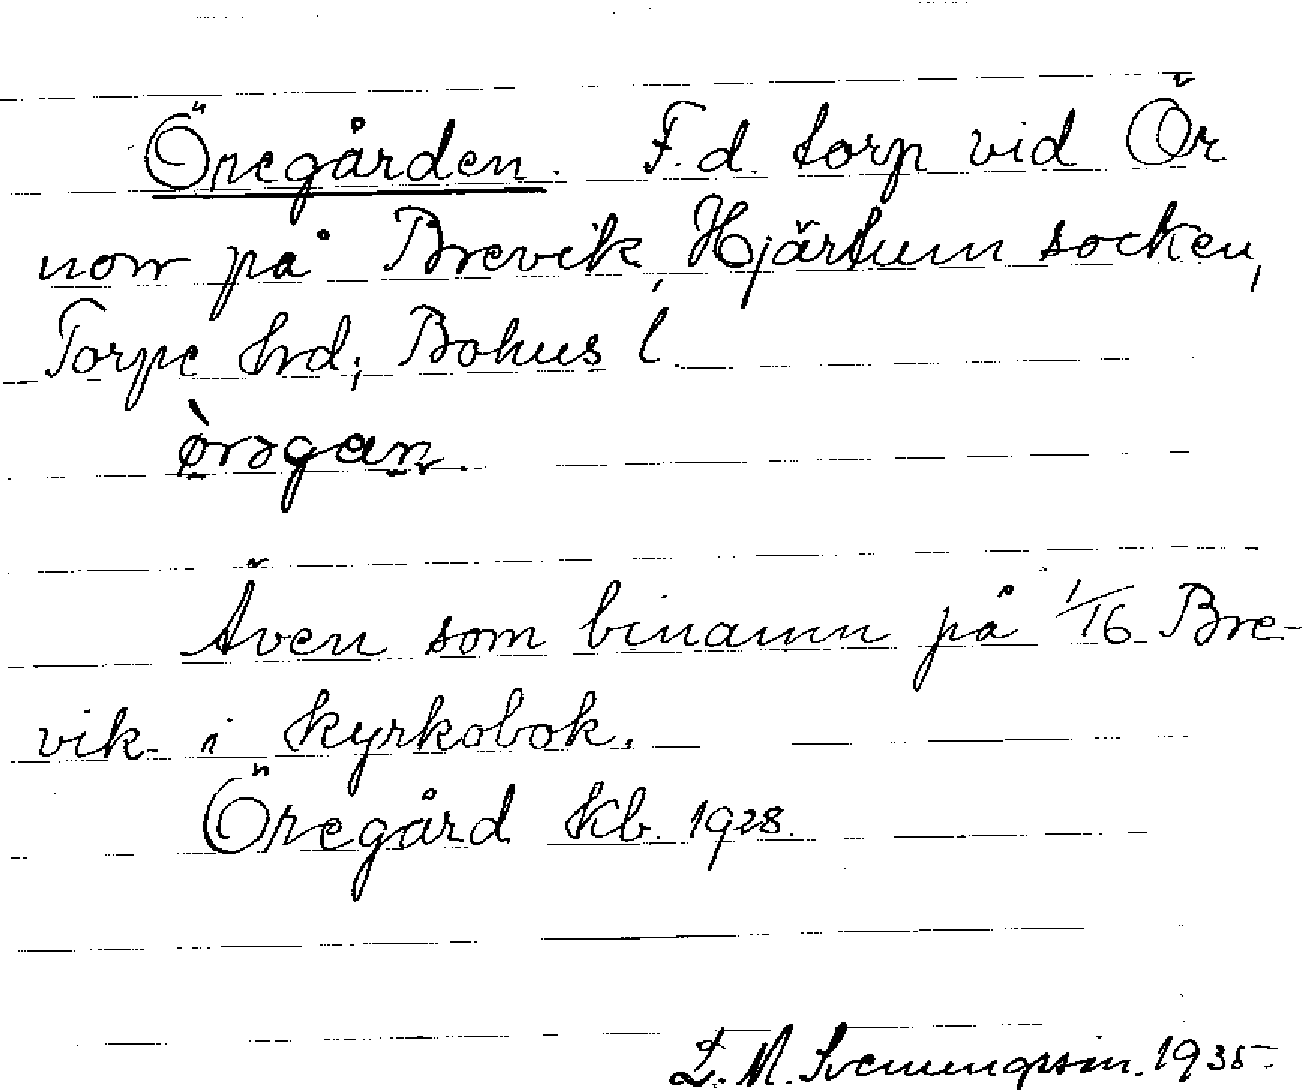 Öregården. F.d. torp vid Ör
nom på Brevik, Hjärtum socken,
Torpe hrd; Bohus l.
Även som binamn på 1/16 Bre-
vik i kyrkobok.
Öregård kb. 1928.
1935.